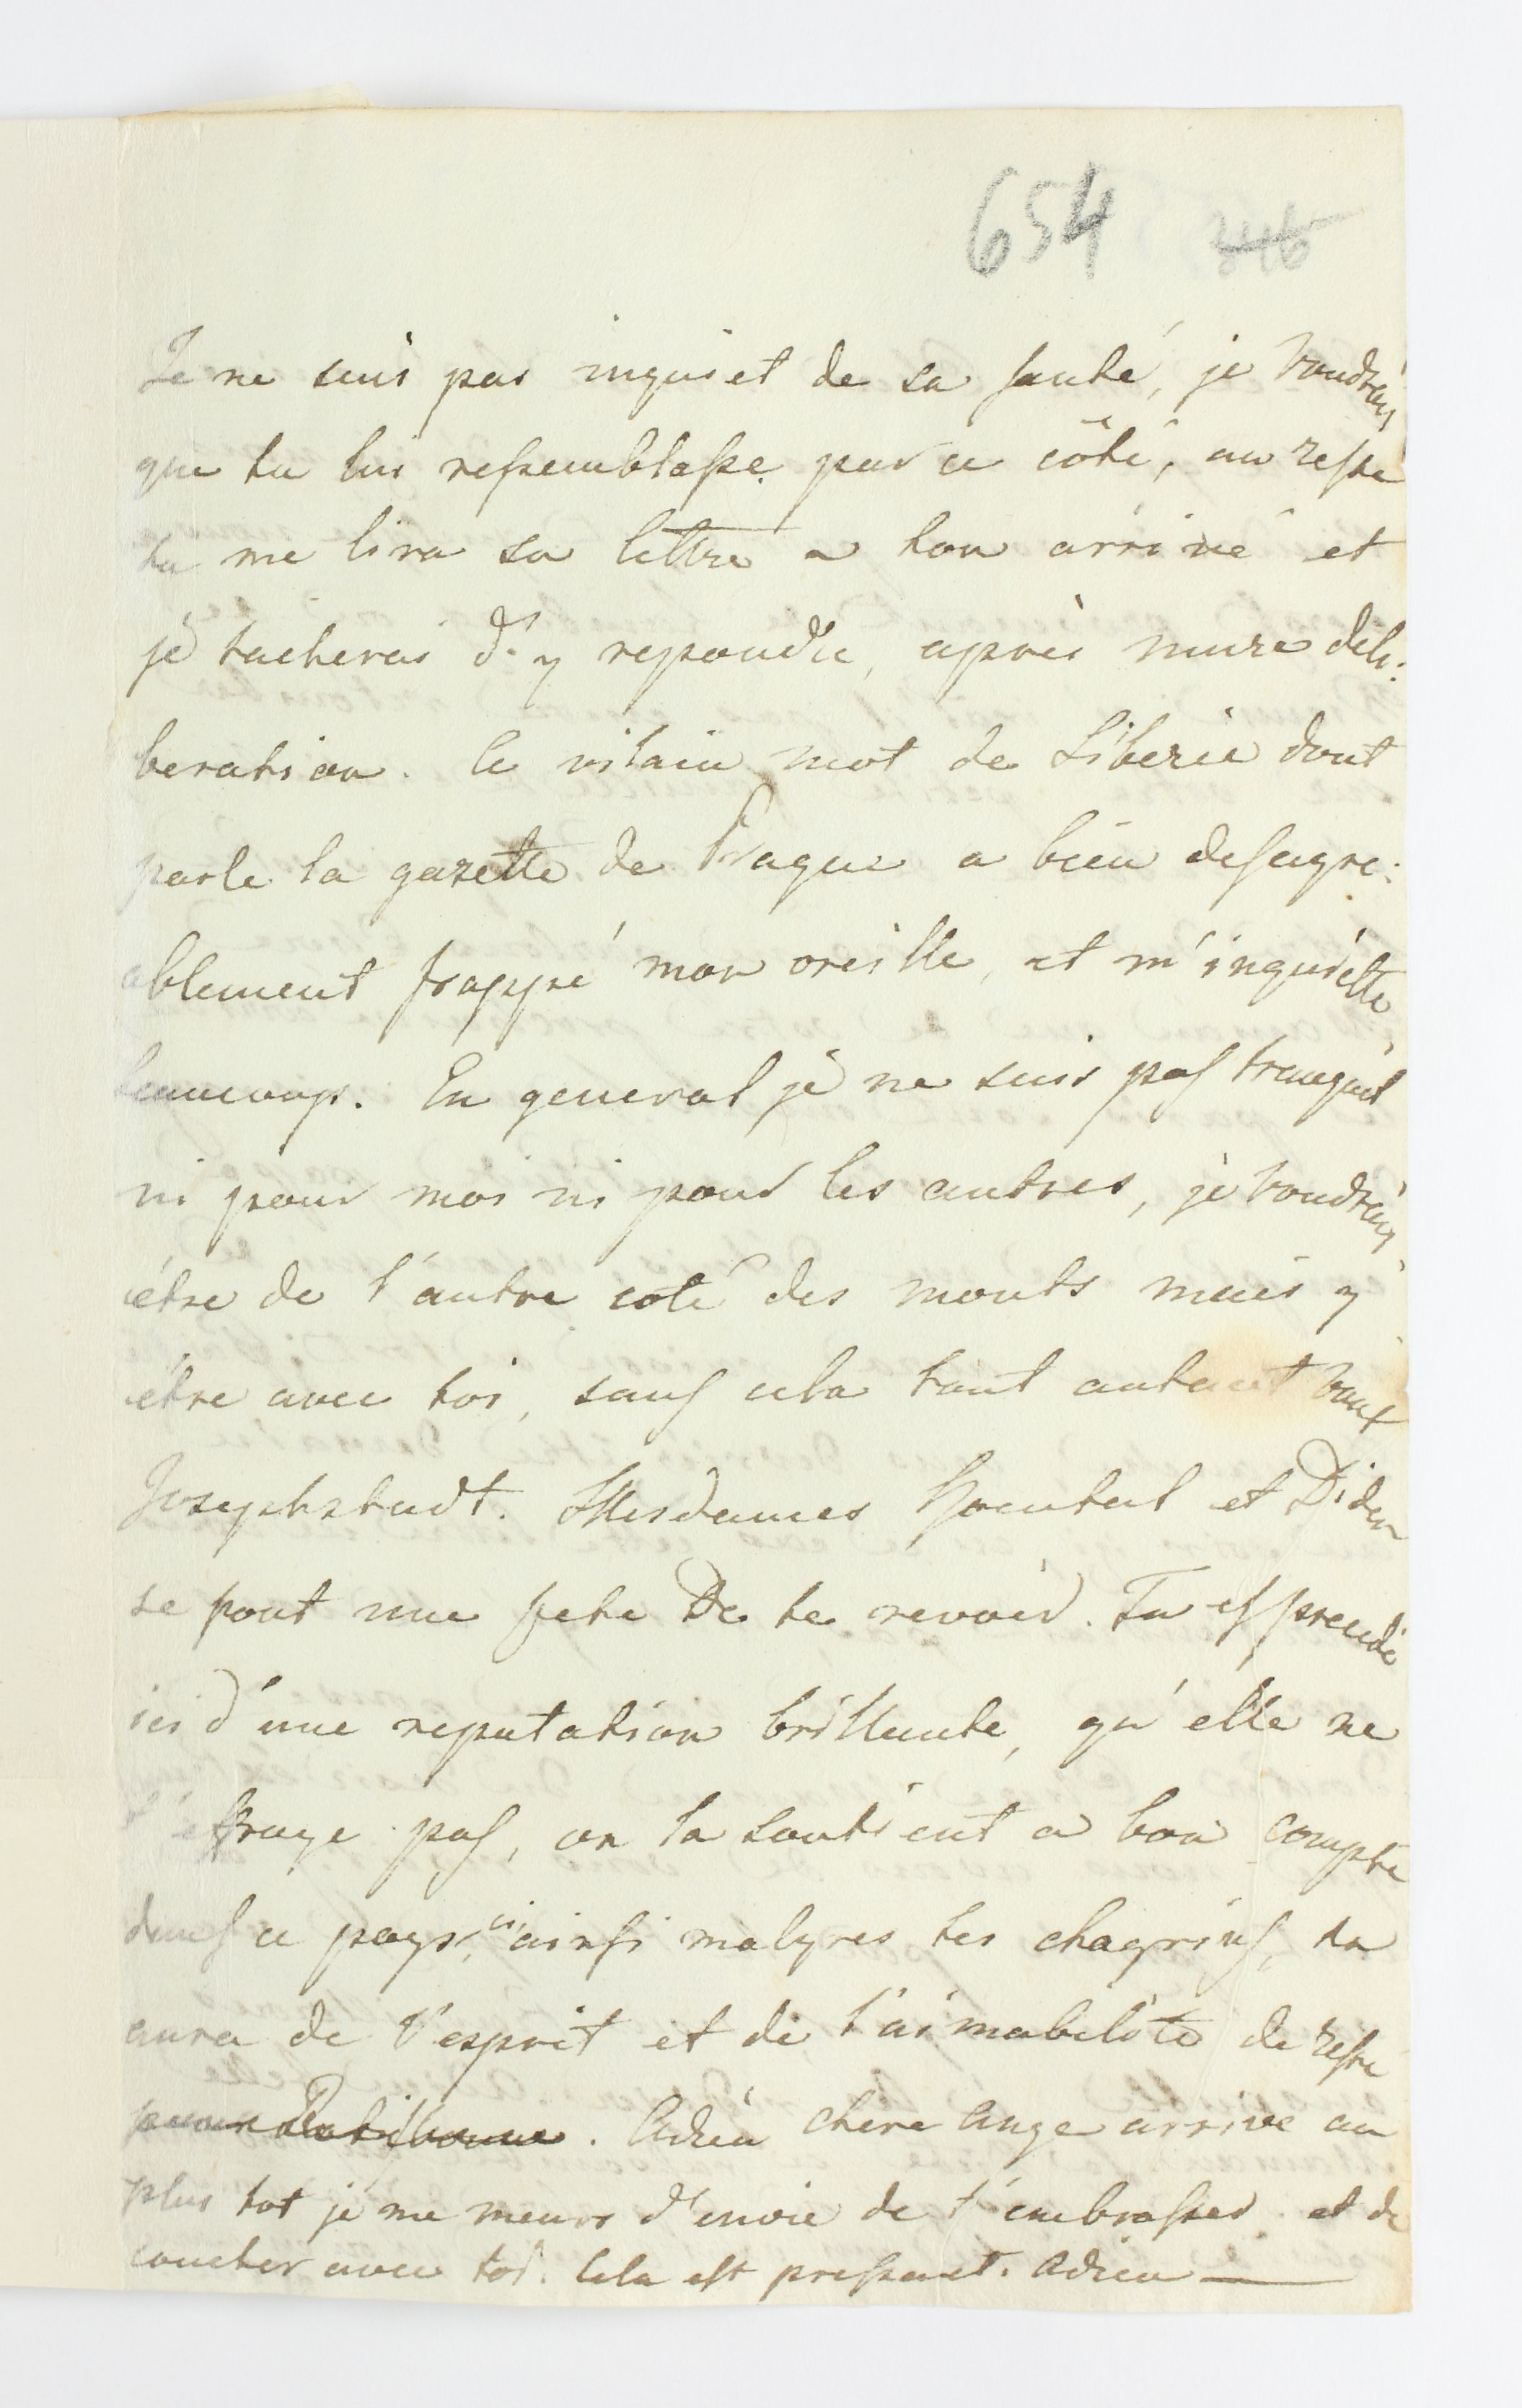 654 346
Je ne suis pas inquiet de sa santé, je voudrais
que tu lui ressemblasse par ce côté, au reste
tu me lira sa lettre a ton arrivé et
je tacherai d'y repondre, après mure deli:
beration. le vilain mot de Siberie dont
parle la gazette de Prague a bien desagre:
ablement frappé mon oreille, et m'inquiette
beaucoup. En general je ne suis pas tranquil
ni pour moi ni pour les autres, je voudrais
être de l'autre coté des monts mais y
être avec toi, sans cela tout autant vaut
Josephstadt. Mesdames et
se font une fete De te revoir. Tu es precedé
ici d'une reputation brillante, qu'elle ne
t'effraye pas, on la soutient a bon compte
dans ce pays ci, ainsi malgres tes chagrins, tu
aura de l'esprit et de l'aimabilité de reste
pour Ratisbonne. Adieu chere Ange arrive au
plus tot je me meurs d'envie de t'embrasser et de
coucher avec toi. Cela est pressant. Adieu